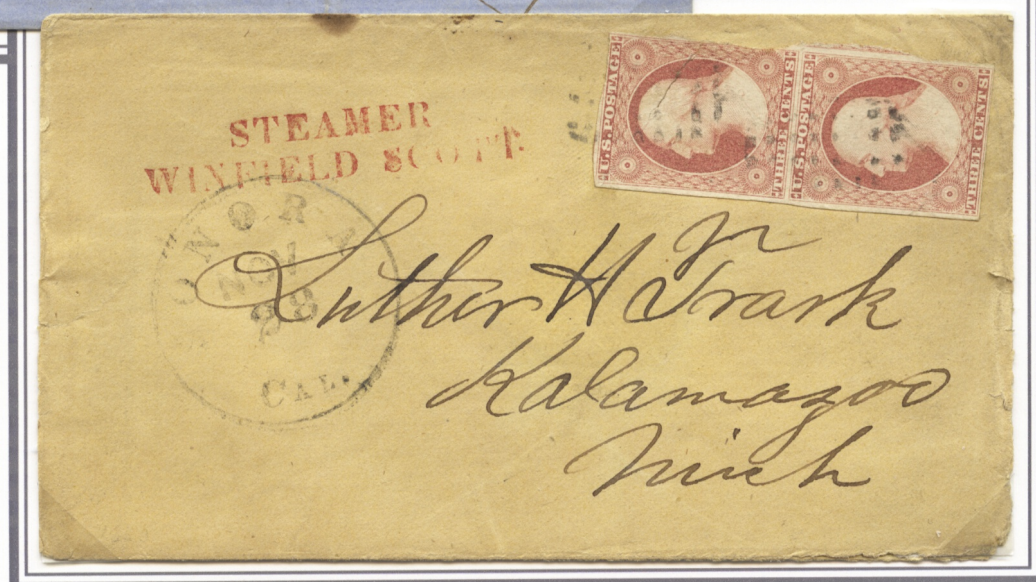 STEAMER
WINFIELD SCOTT.
U.S. POSTAGE
THREE CENTS
U.S. POSTAGE
THREE CENTS
SONORA
NOV
28
CAL.
Luther H Trask
Kalamazoo
Mich